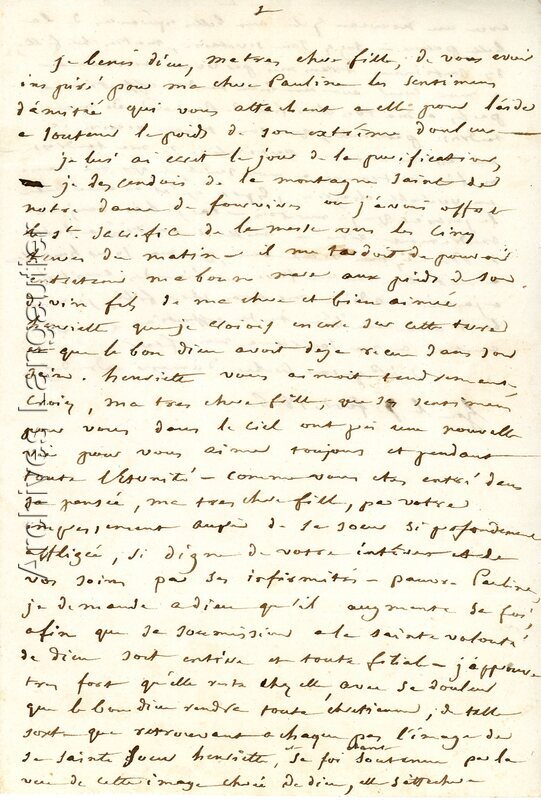 2
je benis dieu, ma tres chere fille, de vous avoir
inspiré pour ma chere Pauline les sentimens
d'amitié qui vous attachent a elle pour l'aider
a soutenir le poids de son extrême douleur —
je lui ai ecrit le jour de la purification,
je descendois de la montagne sainte de
notre dame de fourvieres ou j'avois offert
le st. sacrifice de la messe vers les cinq
heures du matin - il me tardoit de pouvoir
entretenir ma bonne mere aux pieds de son
divin fils de ma chere et bien aimée
henriette que je croiois encore sur cette terre
et que le bon dieu avoit deja recue dans son
sein. henriette vous aimoit tendrement,
croiez, ma tres chere fille, que ses sentimens
pour vous dans le ciel ont pris une nouvelle
vie pour vous aimer toujours et pendant
toute l'Eternité - comme vous etes entré dans
sa pensée, ma tres chere fille, par votre
empressement aupres de sa soeur si profondement
affligée, si digne de votre intérêt et de
vos soins par ses infirmités - pauvre Pauline,
je demande a dieu qu'il augmente sa foi,
afin que sa soumission a la sainte volonté
de dieu soit entiere et toute filial - j'approuve
tres fort qu'elle reste chez elle, avec sa douleur
que le bon dieu rendra toute chretienne, de telle
sorte que retrouvant a chaque pas l'image de
sa sainte soeur henriette, et sa foi soutenant par la
vue de cette image chérie de dieu, elle s'attachera
Archives Lamennais